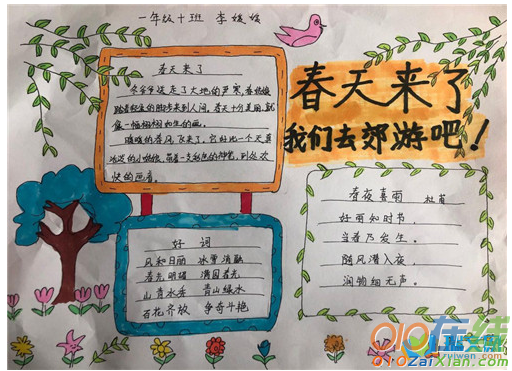 一年级十班 李媛媛
春天来了
我们去郊游吧！
春天来了
冬爷爷送走了大地的严寒，春姑娘
踏着轻盈的脚步来到人间。春天十分美丽，就
像一幅栩栩如生的画。
暖暖的春风飞来了，它好比一个天真
活泼的小姑娘，带着一支彩色的神笔，到处欢
快的画着。
春夜喜雨 杜甫
好雨知时节，
当春乃发生。
随风潜入夜，
润物细无声。
好词
风和日丽 冰雪消融
春光明媚 满园春光
山青水秀 青山绿水
百花齐放 争奇斗艳
010在线
010zaixian.com